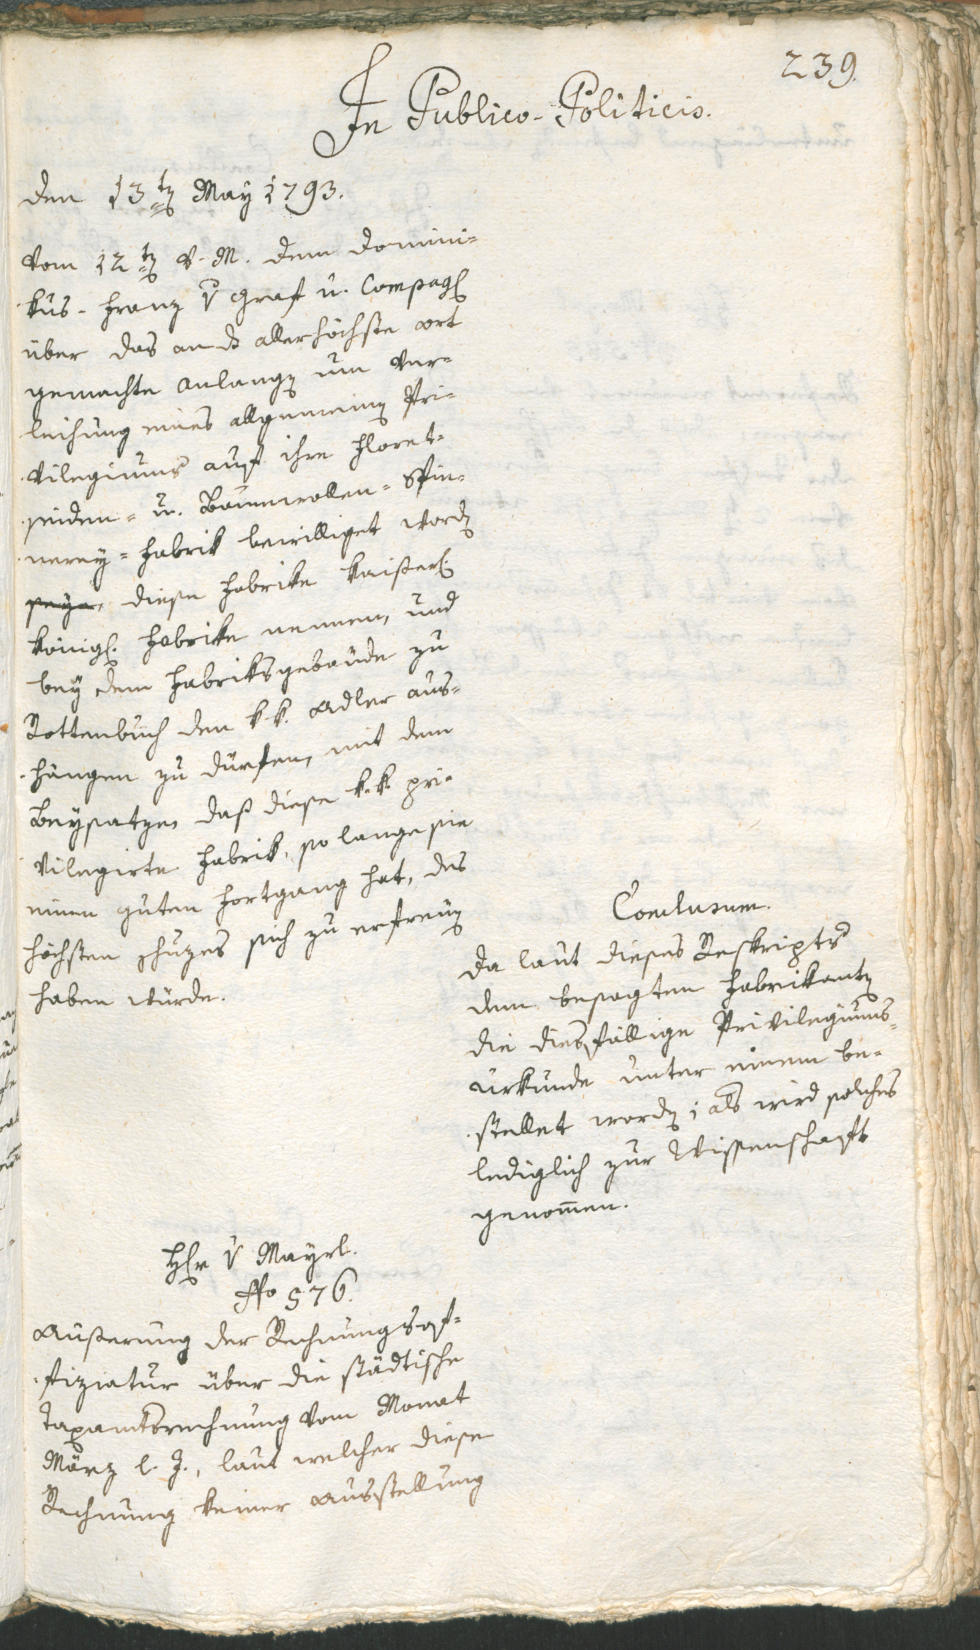 239.
In Publico-Politicis.
den 13ten May 1793.
Vom 12ten v. M. dem Domini-
kus-Franz v Graf u. Compagl
über das an ds allerhöchste Ort
gemachte Anlangen um Ver-
leihung eines allgemeinen Pri-
vilegiums auf ihre Floret-
seiden- u. Baumwollen-Spin-
nerey-Fabrik bewilliget worden
seye, diese Fabrike kaiserl.
königl. Fabrike nennen, und
bey dem Fabriksgebäude zu
Rottenbuch den k.k. Adler aus-
hängen zu dürfen, mit dem
Beysatze, daß diese k.k. pri-
vilegirte Fabrik, so lange sie
einen guten Fortgang hat, des
höchsten Schuzes sich zu erfreuen
haben würde.
Conclusum.
Da laut dieses Reskripts
dem besagten Fabrikanten
die diesfällige Privilegiums-
urkunde unter einem be-
stellet worden; als wird solches
lediglich zur Wissenschaft
genommen.
Hr v Mayrl.
No 576.
Äußerung der Rechnungsof-
fiziatur über die städtische
Taxamtsrechnung vom Monat
März l. J., laut welcher diese
Rechnung keiner Ausstellung